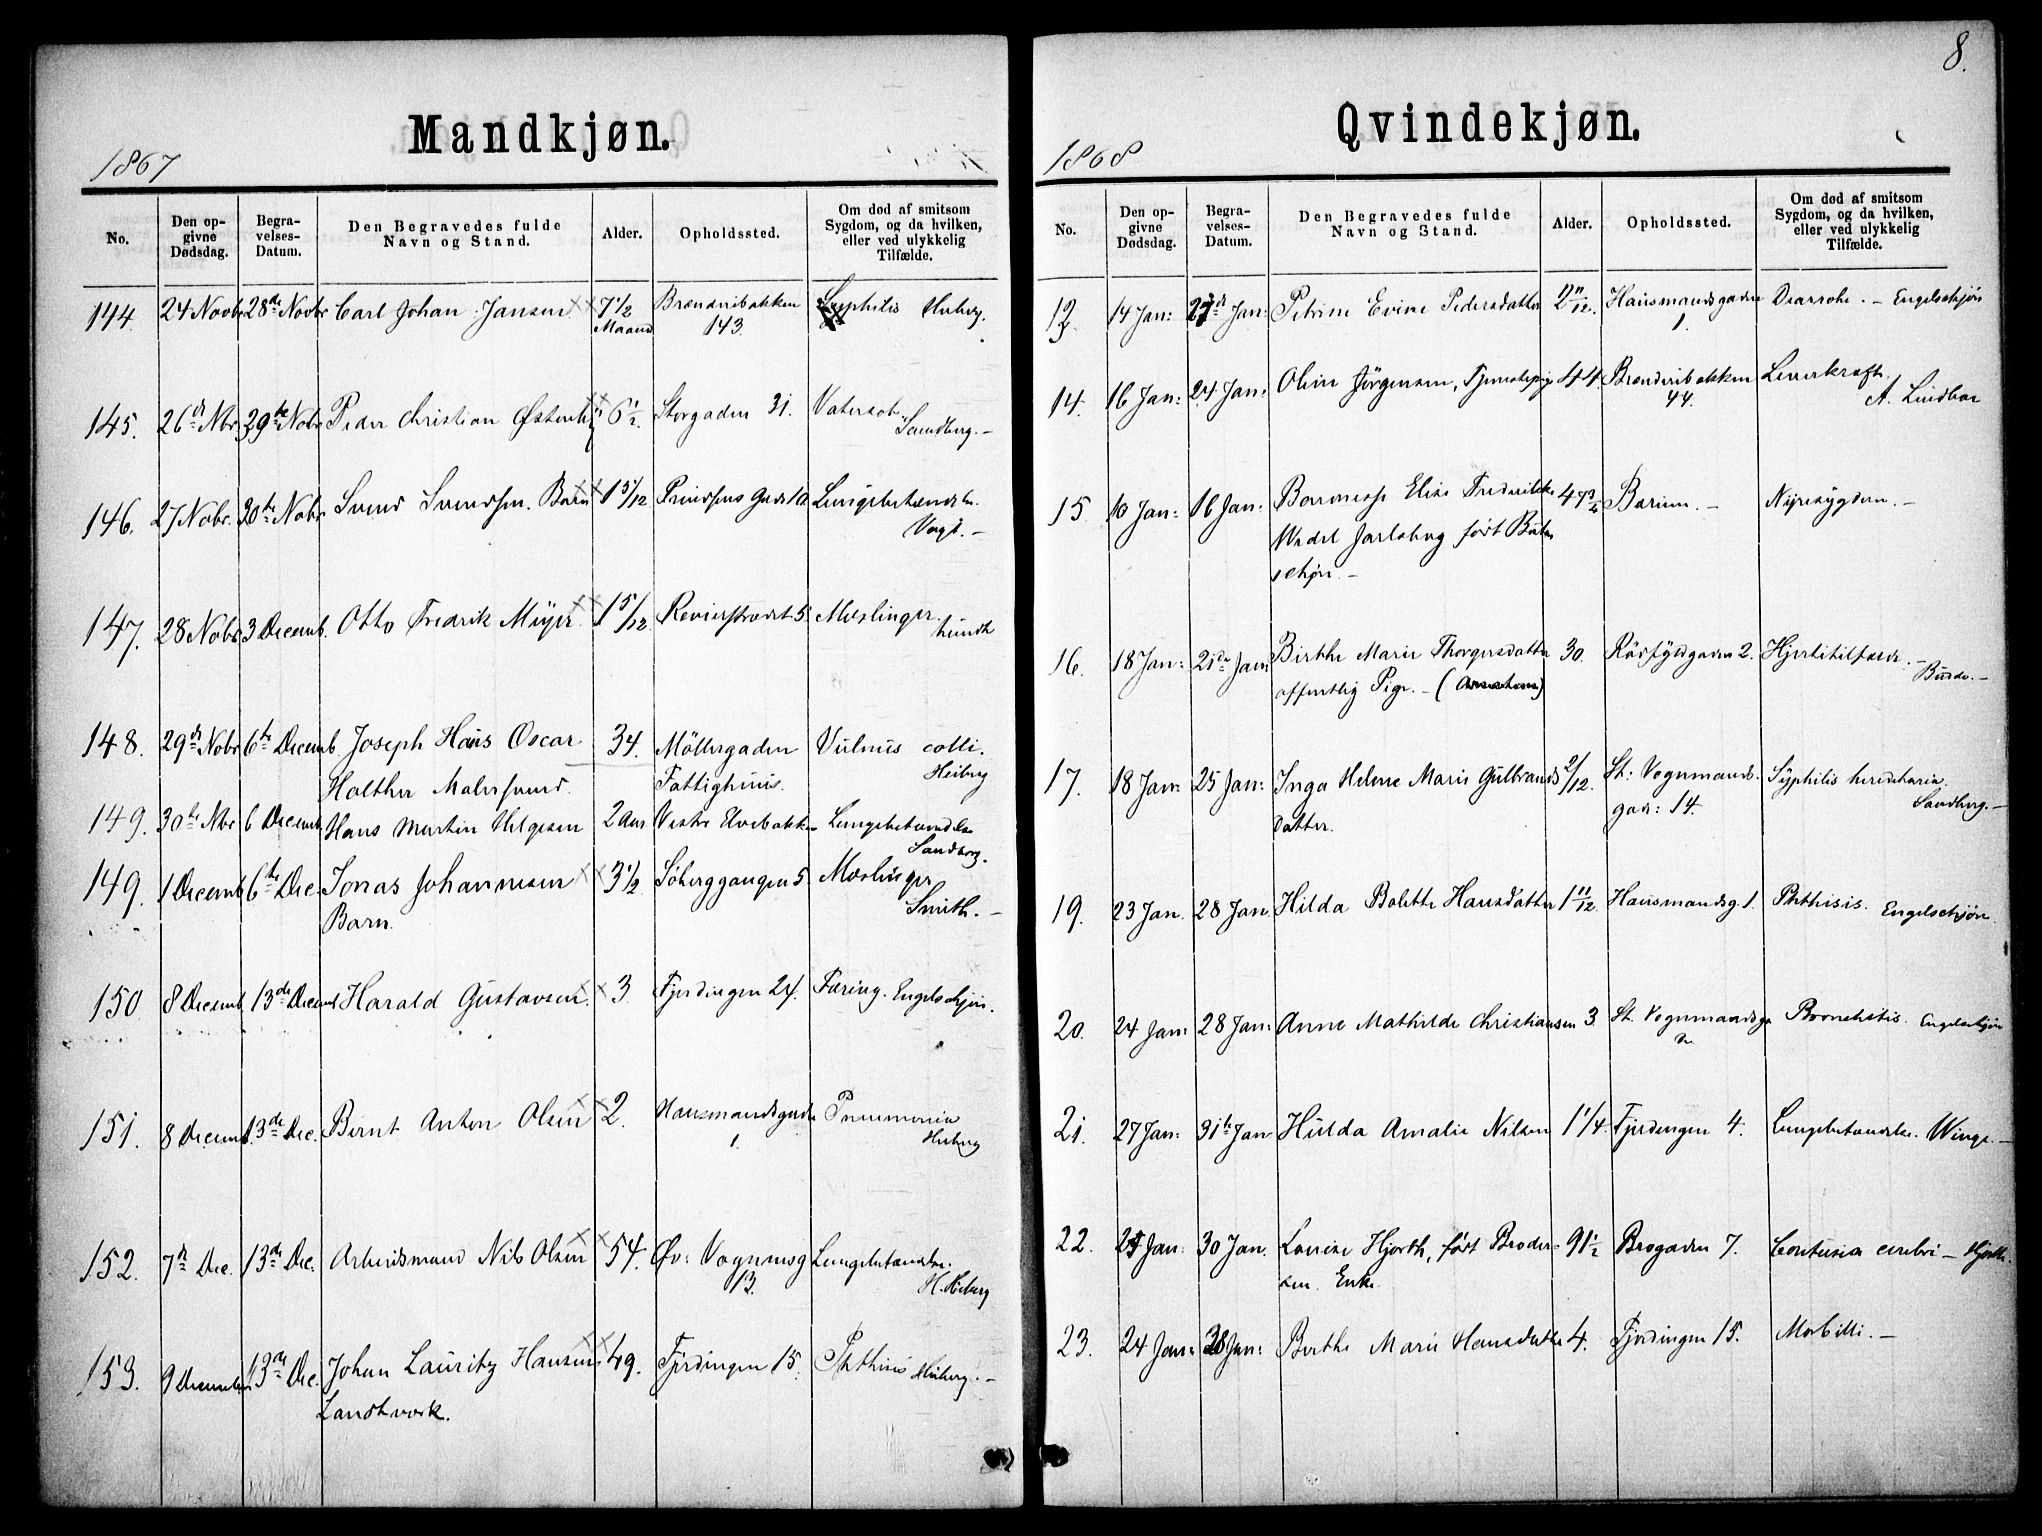 8.
Mandkjøn.
1867
No.
Den op-
givne
Dødsdag.
Begra-
velses-
Datum.
Den Begravedes fulde
Navn og Stand.
Alder.
Opholdssted.
Om død af smitsom
Sygdom, og da hvilken,
eller ved ulykkelig
Tilfælde.
144. 24 Novbr 28de Novbr Carl Johan Jansen 7 1/2 Brænderibakken Syphilis Heiberg.
Maaned 143.
145. 26de Nbr. 29de Nobr Peder Christian 6 1/2. Storgaden 31. Vatersot
Sandberg. –
146. 27 Nobr. 30te Nobr Svend Svendsen. Barn 1 5/12 Prindsens Gade 10 Lungebetændelse.
Vogt. –
147. 28 Nobr 3 Decemb. Otto Fredrik Meyer 1 5/12 Revierstrædet 5 Mæslinger
Lundh
148. 29de Nobr 6te Decemb. Joseph Hans Oscar 34. Møllergaden Vulnus colli.
Holther Malersvend. Fattighuus. Heiberg
149. 30te Nbr 6 Decemb. Hans Martin Helgesen 2 Aar Vestre Elvebakken Lungebetændelse
Sandberg.
149. 1 Decemb. 6te Dec. Jonas Johannesen 3 1/2 Söberggangen 5 Mæslinger
Barn. Smith. –
150 8 Decemb. 13de Decemb Harald Gustavsen. 3 Fjerdingen 24. Tæring. Engelschjön.
151. 8 Decemb. 13de Dec. Bernt Anton Olsen 2. Hausmandsgaden Pneumonia
1. Heiberg
152. 7de Dec. 13de Dec. Arbeidsmand Nils Olsen 54. Øv: Vognmsg Lungebetændelse.
13. H. Heiberg
153. 9 December 13de Dec. Johan Lauritz Hansen 49. Fjerdingen 15. Phthisis Heiberg. –
Landtværk.
Qvindekjøn.
1868
No.
Den op-
givne
Dødsdag.
Begra-
velses-
Datum.
Den Begravedes fulde
Navn og Stand.
Alder.
Opholdssted.
Om død af smitsom
Sygdom, og da hvilken,
eller ved ulykkelig
Tilfælde.
14 Jan: Jan: Petrine Evine Pedersdatter 2 11/12. Hausmandsgaden Diarrohe. – Engelschjön
1.
14. 16 Jan: 24 Jan: Oline Jörgensen, Tjenestepige 44. Brænderibakken Leverkræft.
44. A. Lindboe
15 10 Jan: 16 Jan: Baronesse Elise Frederikke 47 3/4 Bærum. – Nyresygdom. –
Wedel Jarlsberg født
schjön. –
16. 18 Jan: 21de Jan: Birthe Marie Thorgersdatter 30. Rörfyldgaden 2. Hjertetilfælde. –
offentlig Pige. – Budde. –
17. 18 Jan: 25 Jan: Inga Helene Marie Gulbrands 2/12. St: Vognmands- Syphilis hereditaria
Datter. gade: 14. Sandberg. –
19. 23 Jan. 28 Jan. Hilda Bolette Hansdatter 1 11/12. Hausmandsg. 1. Phthisis. Engelschjön
20. 24 Jan: 28 Jan: Anne Mathilde Christiansen 3. St. Vognmandsga Bronchitis. Engelschjön
21. 27 Jan: 31te Jan Hulda Amalie Nilsen 1 1/4. Fjerdingen 4. Lungebetændelse. Winge. –
22. 25 Jan: 30 Jan. Louise Hjorth, født Broder- 91 1/2 Brogaden 7. Contusia cerebri – Hjorth.
sen. Enke.
23. 24 Jan: 28 Jan: Berthe Marie Hansdatter 4. Fjerdingen 15. Morbilli. –